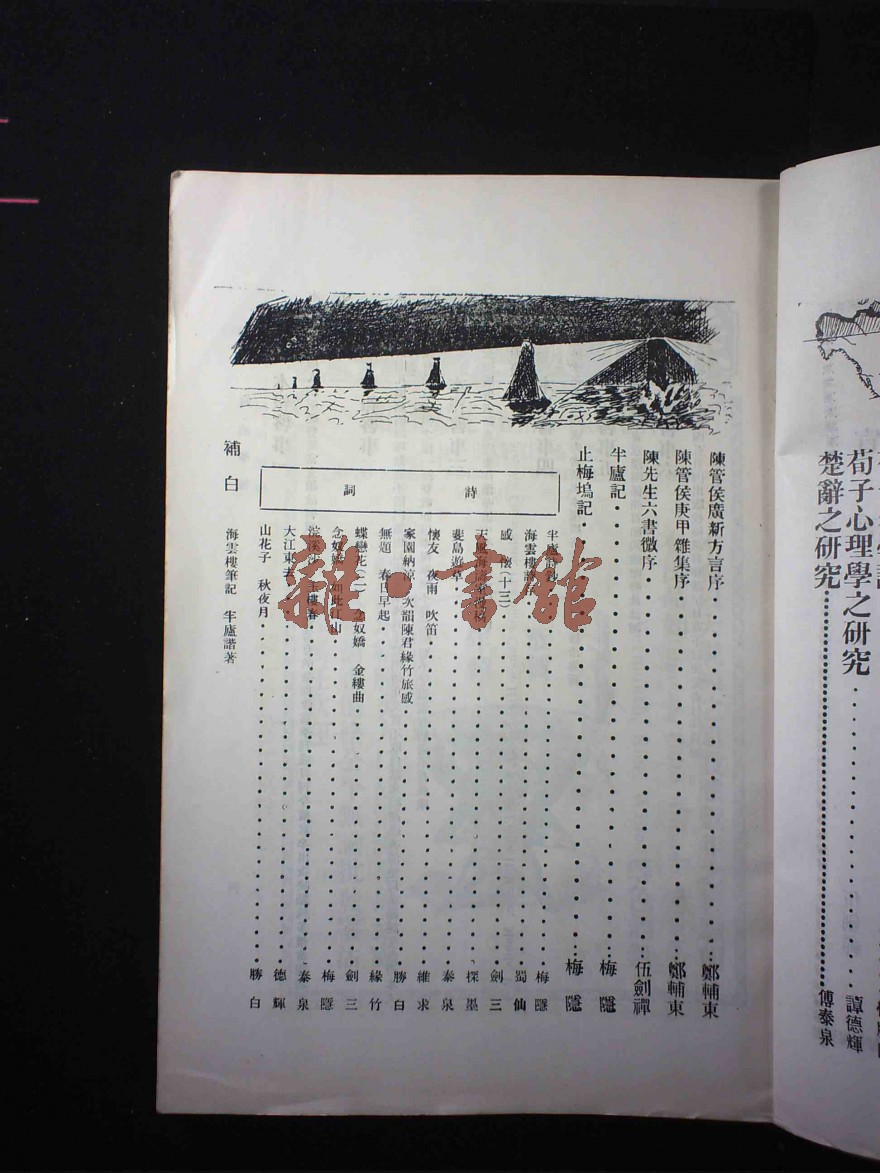 荀子心理學之研究 譚德輝
楚辭之研究 傅泰泉
陳管侯廣新方言序 鄭輔東
陳管侯庚甲雜集序 鄭輔東
陳先生六書微序 伍劍禪
半廬記 梅隱
止梅塢記 梅隱
詩 詞
半廬詩 梅隱
海雲樓詩 蜀仙
感懷(十三) 劍三
天風海濤 探墨
斐島遊草 泰泉
懷友 夜雨 吹笛 維求
家園納涼 次韻陳君緣竹旅感 勝白
無題 春日早起 緣竹
蝶戀花(二) 念奴嬌 金縷曲 劍三
念奴嬌 如此江山 梅隱
浣溪沙 玉樓春 泰泉
大江東去 德輝
山花子 秋夜月 勝白
補白 海雲樓筆記 半廬譜著
雜·書館